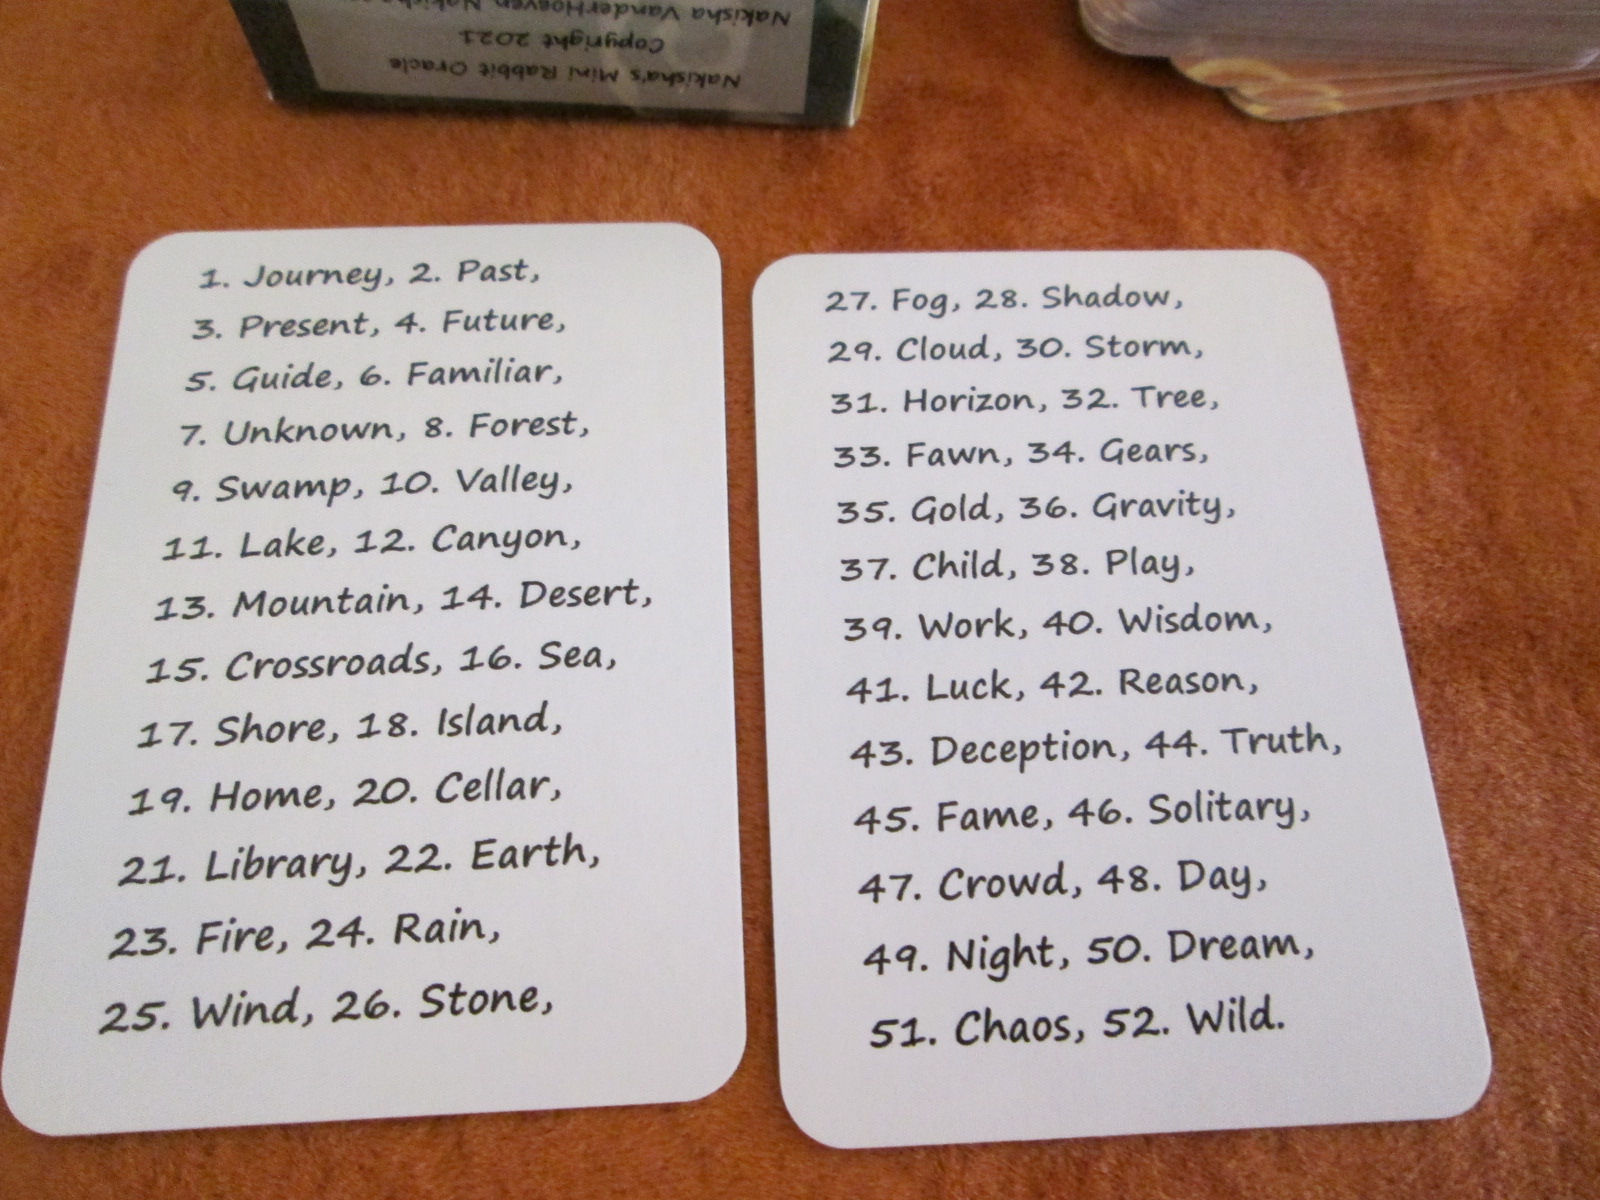 Nakisha's Mini Rabbit Oracle
Copyright 2021
Nakisha VanderHoeven
1. Journey, 2. Past,
3. Present, 4. Future,
5. Guide, 6. Familiar,
7. Unknown, 8. Forest,
9. Swamp, 10. Valley,
11. Lake, 12. Canyon,
13. Mountain, 14. Desert,
15. Crossroads, 16. Sea,
17. Shore, 18. Island,
19. Home, 20. Cellar,
21. Library, 22. Earth,
23. Fire, 24. Rain,
25. Wind, 26. Stone,
27. Fog, 28. Shadow,
29. Cloud, 30. Storm,
31. Horizon, 32. Tree,
33. Fawn, 34. Gears,
35. Gold, 36. Gravity,
37. Child, 38. Play,
39. Work, 40. Wisdom,
41. Luck, 42. Reason,
43. Deception, 44. Truth,
45. Fame, 46. Solitary,
47. Crowd, 48. Day,
49. Night, 50. Dream,
51. Chaos, 52. Wild.